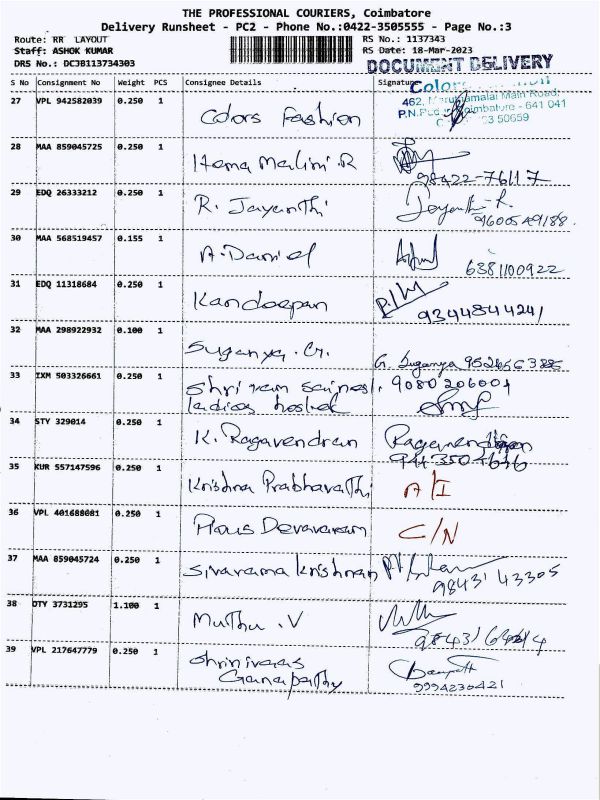 THE PROFESSIONAL COURIERS, Coimbatore
Delivery Runsheet - PC2 - Phone No.:0422-3505555 - Page No.:3
Route: RR LAYOUT RS No.: 1137343
Staff: ASHOK KUMAR RS Date: 18-Mar-2023
DRS No.: DCJB113734303 DOCUMENT DELIVERY
S No Consignment No Weight PCS Consignee Details Signature
27 VPL 942582039 0.250 1 Colors Fashion
462, Marudhamalai Main Road,
641 041
28 MAA 859045725 0.250 1 Hema Malini.R
98422-76117
29 EDQ 26333212 0.250 1 R. Jayanthi Jayanthi.R
9600549188
30 MAA 568519457 0.155 1 A.Daniel
6381100922
31 EDQ 11318684 0.250 1 Kandeepan
9344844241
32 MAA 298922932 0.100 1 Suganya.G. G. Suganya
33 IXM 503326661 0.250 1 Shri ram 9080206001
ladies hostel
34 STY 329014 0.250 1 K. Ragavendran
35 KUR 557147596 0.250 1 Krishna Prabhavathi A/I
36 VPL 401688081 0.250 1 Devavaram C/N
37 MAA 859045724 0.250 1 Sivarama Krishnan
98431 43305
38 DTY 3731295 1.100 1 Muthu.V
39 VPL 217647779 0.250 1 Shrinivaas
Ganapathy 9994230421